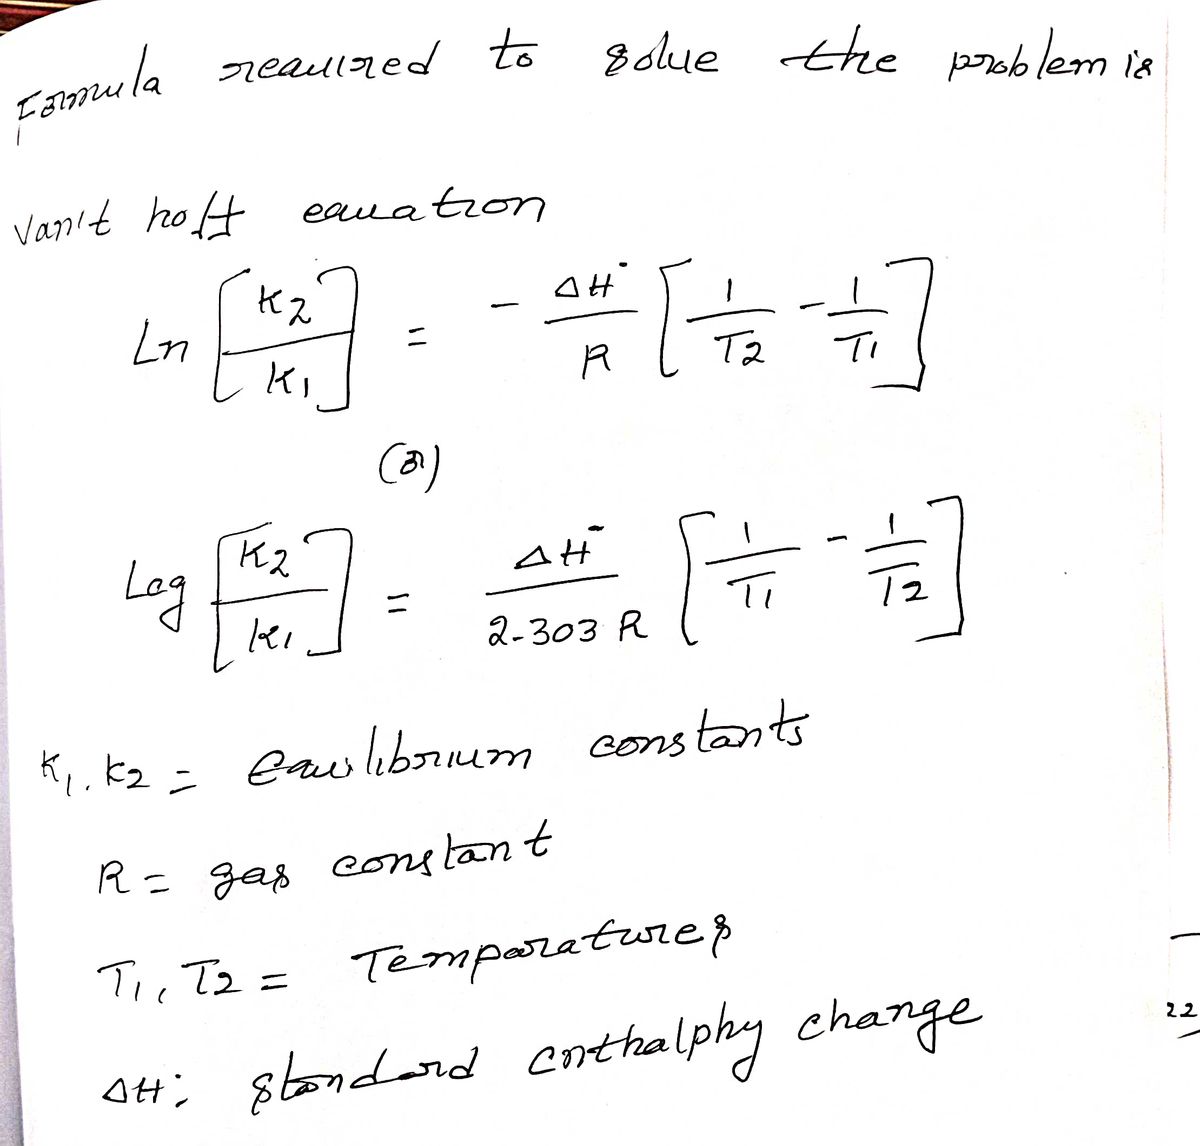 Formula required to solve the problem is
Van't hoff equation
Ln [K2/K1] = - ΔH°/R [1/T2 - 1/T1]
(or)
Log [K2/K1] = ΔH°/2.303 R [1/T1 - 1/T2]
K1, K2 = Equilibrium constants
R = gas constant
T1, T2 = Temparatures
ΔH: standard enthalphy change
22